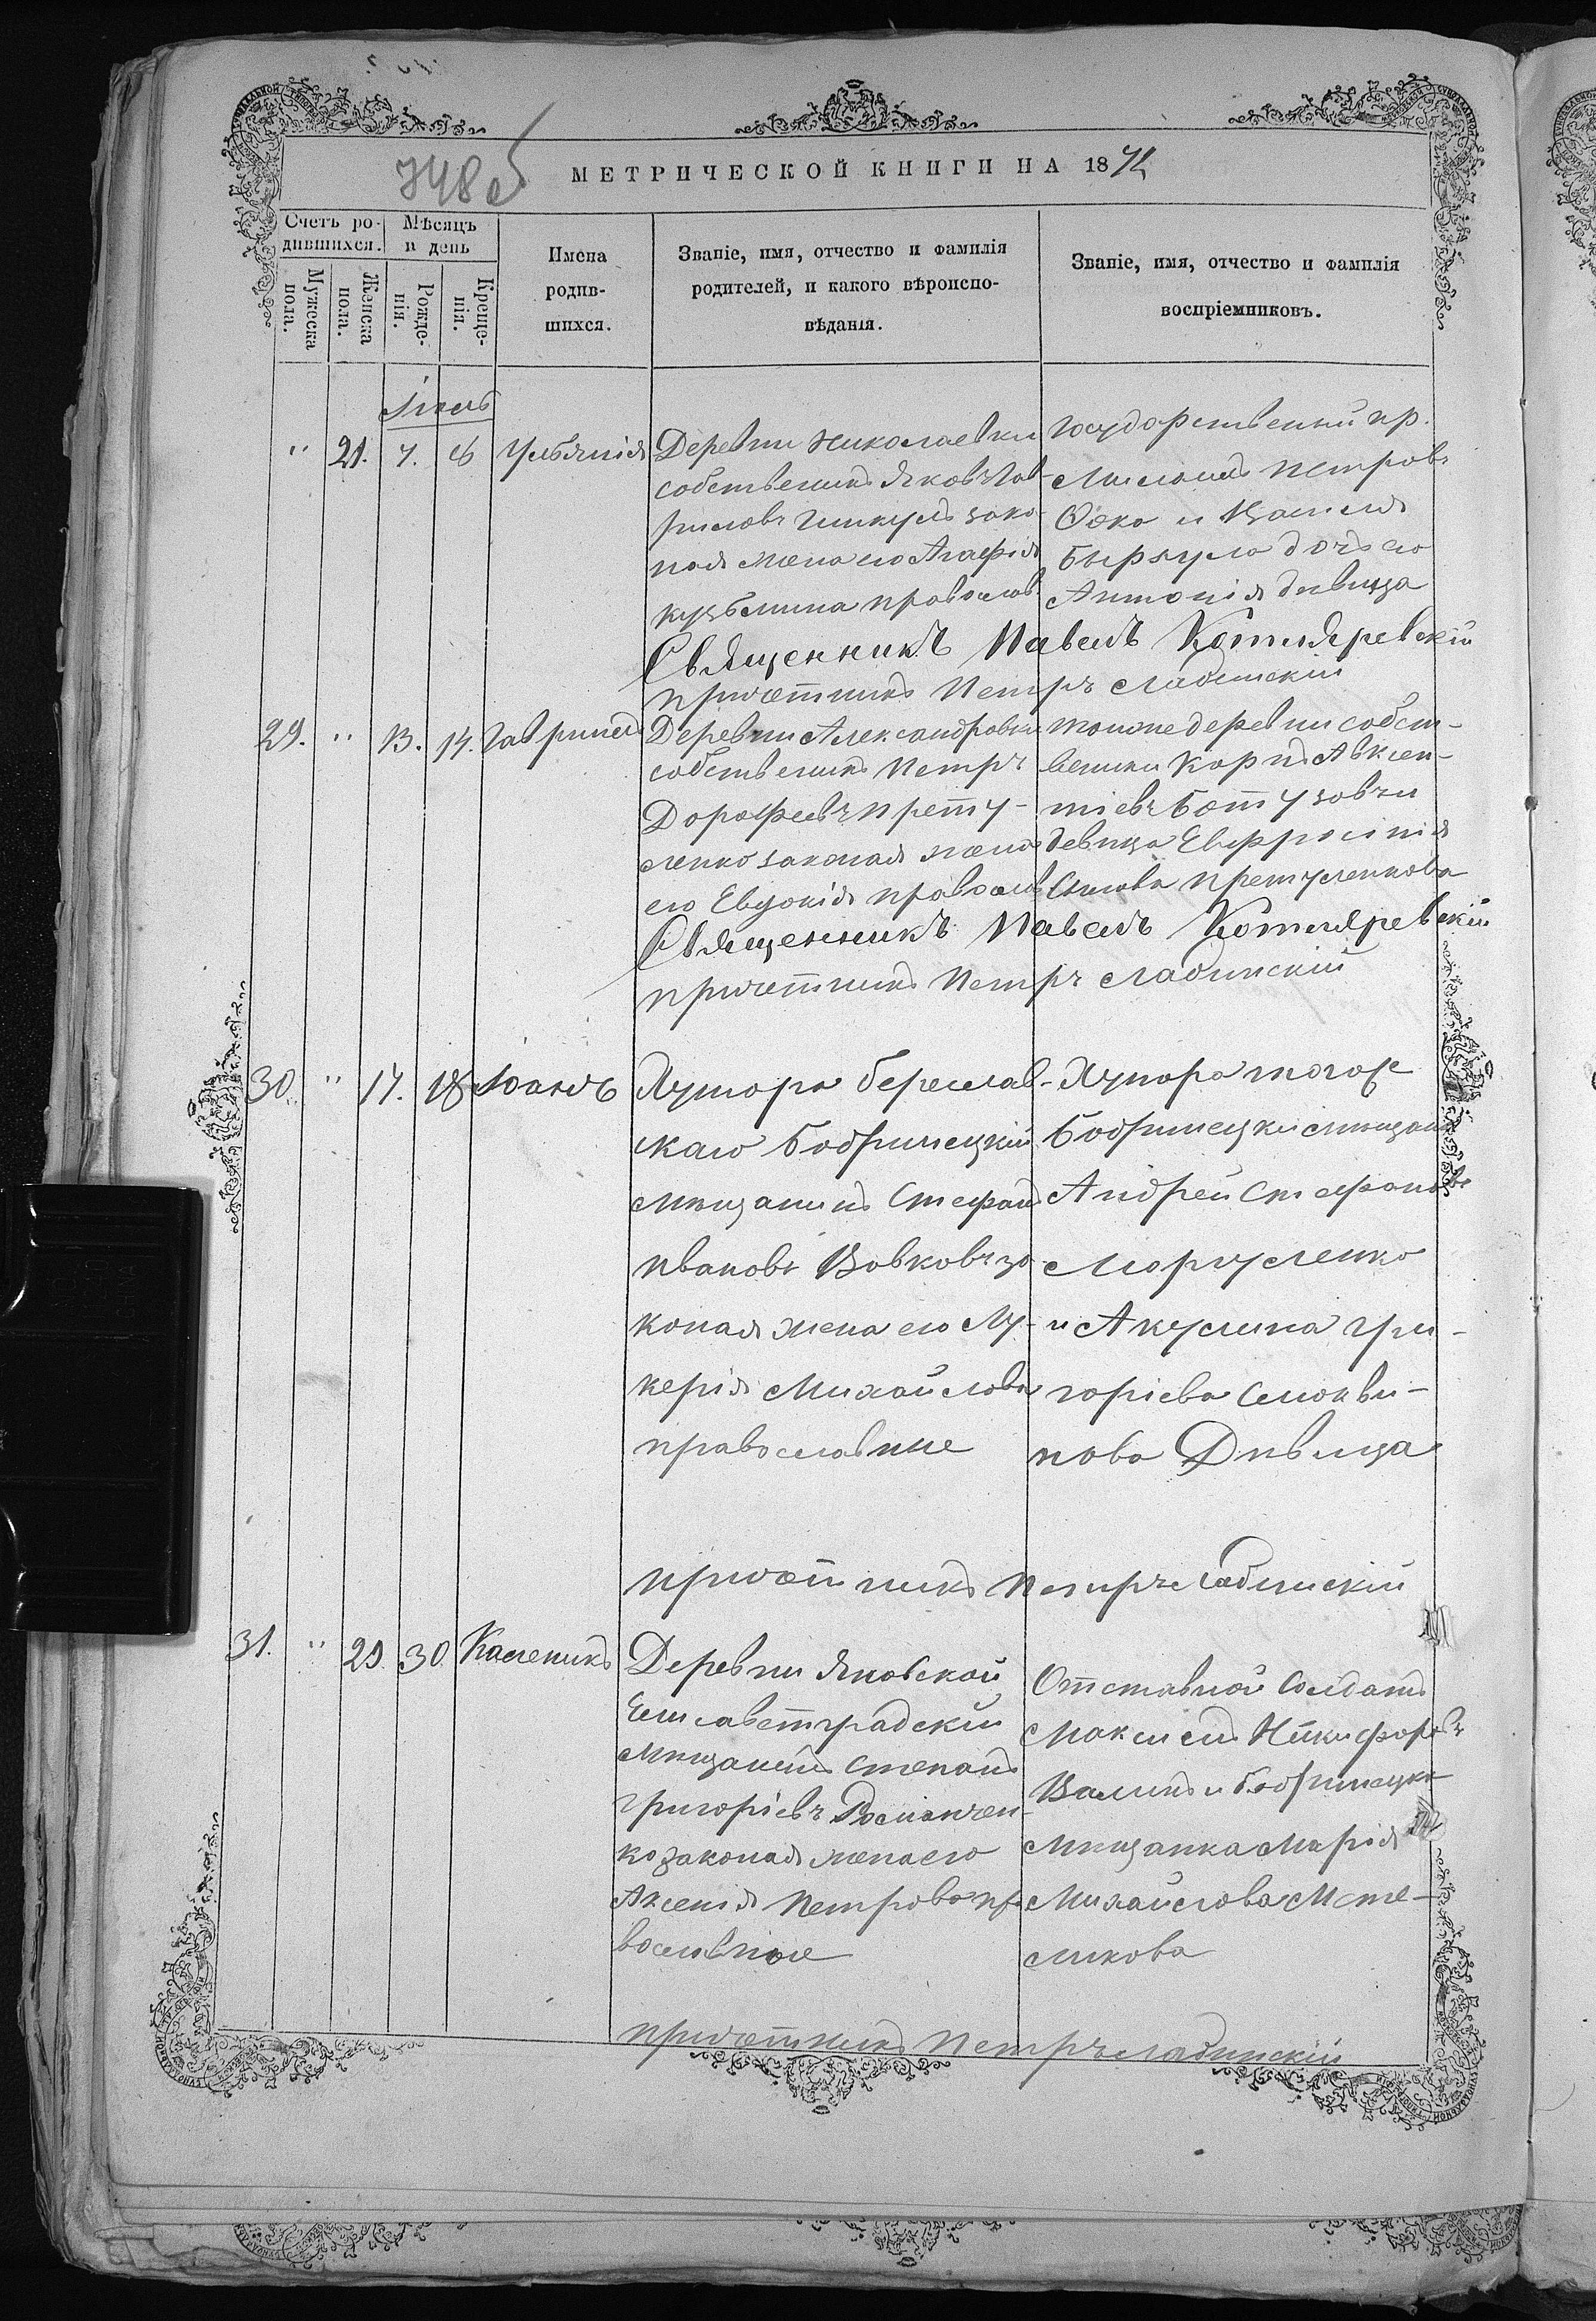 748 об
МЕТРИЧЕСКОЙ КНИГИ НА 1872
Счетъ ро-
дившихся.
Мѣсяцъ
и день
Мужеска
пола.
Женска
пола.
Рожде-
нія.
Креще-
нія.
Имена
родив-
шихся.
Званіе, имя, отчество и фамилія
родителей, и какого вѣроиспо-
вѣданія.
Званіе, имя, отчество и фамилія
воспріемниковъ.
Іюль
" 21. 7. 8 Ульянія
Деревни Николаевки
собственикъ Яковъ Гав-
риловъ зако-
ная жена его Агафія
Кузьмина православ.
Государственый кр.
Петровъ
и
дочь его
Антонія девица
Священникъ Павелъ Котляревскій
причетникъ Петръ Ладинскій
29. " 13. 14. Гавриилъ
Деревни Александровки
собственикъ Петръ
Дорофеевъ Прету-
ленко законая жена
его Евдокія православ
тойже деревни собст-
веники Карпъ Авксен-
тіевъ и
девица Евфросинія
Претуленкова
Священникъ Павелъ Котляревскій
причетникъ Петръ Ладинскій
30. " 17. 18 Іоанъ
Хутора Береслав-
скаго Бобринецкій
мещанинъ Стефанъ
Ивановъ Вовковъ за-
коная жена его Лу-
керія Михайлова
православные
Хутора тогоже
Бобринецкій мещанин
Андрей Стефановъ
Моруленко
и Акулина Гри-
горіева
нова Дѣвица
причетникъ Петръ Ладинскій
31. " 29. 30 Каленикъ
Деревни Яновской
Елисаветградскій
Мещанинъ Степанъ
Григоріевъ Романчен-
ко законая жена его
Аксенія Петрова пра-
вославные
Отставной Солдатъ
Максимъ Никифоровъ
и Бобринецка
мещанка Марія
Михайлова Мете-
ликова
причетникъ Петръ Ладинскій